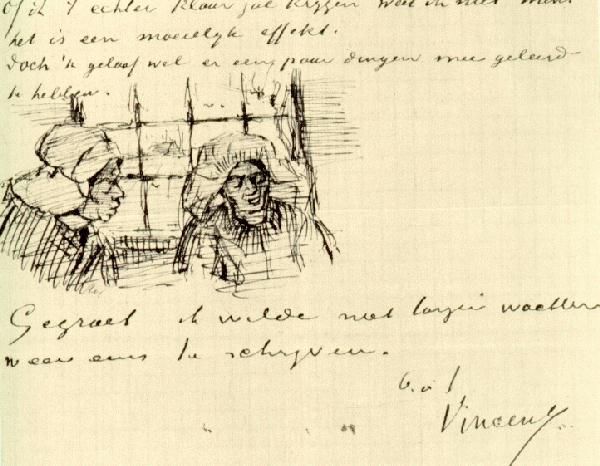 Of ik 't echter klaar zal krijgen weet ik niet want
het is een moeielijk effekt.
Doch 'k geloof wel er een paar dingen mee geleerd
te hebben.
Gegroet ik wilde niet langer wachten
weer eens te schrijven.
Vincent